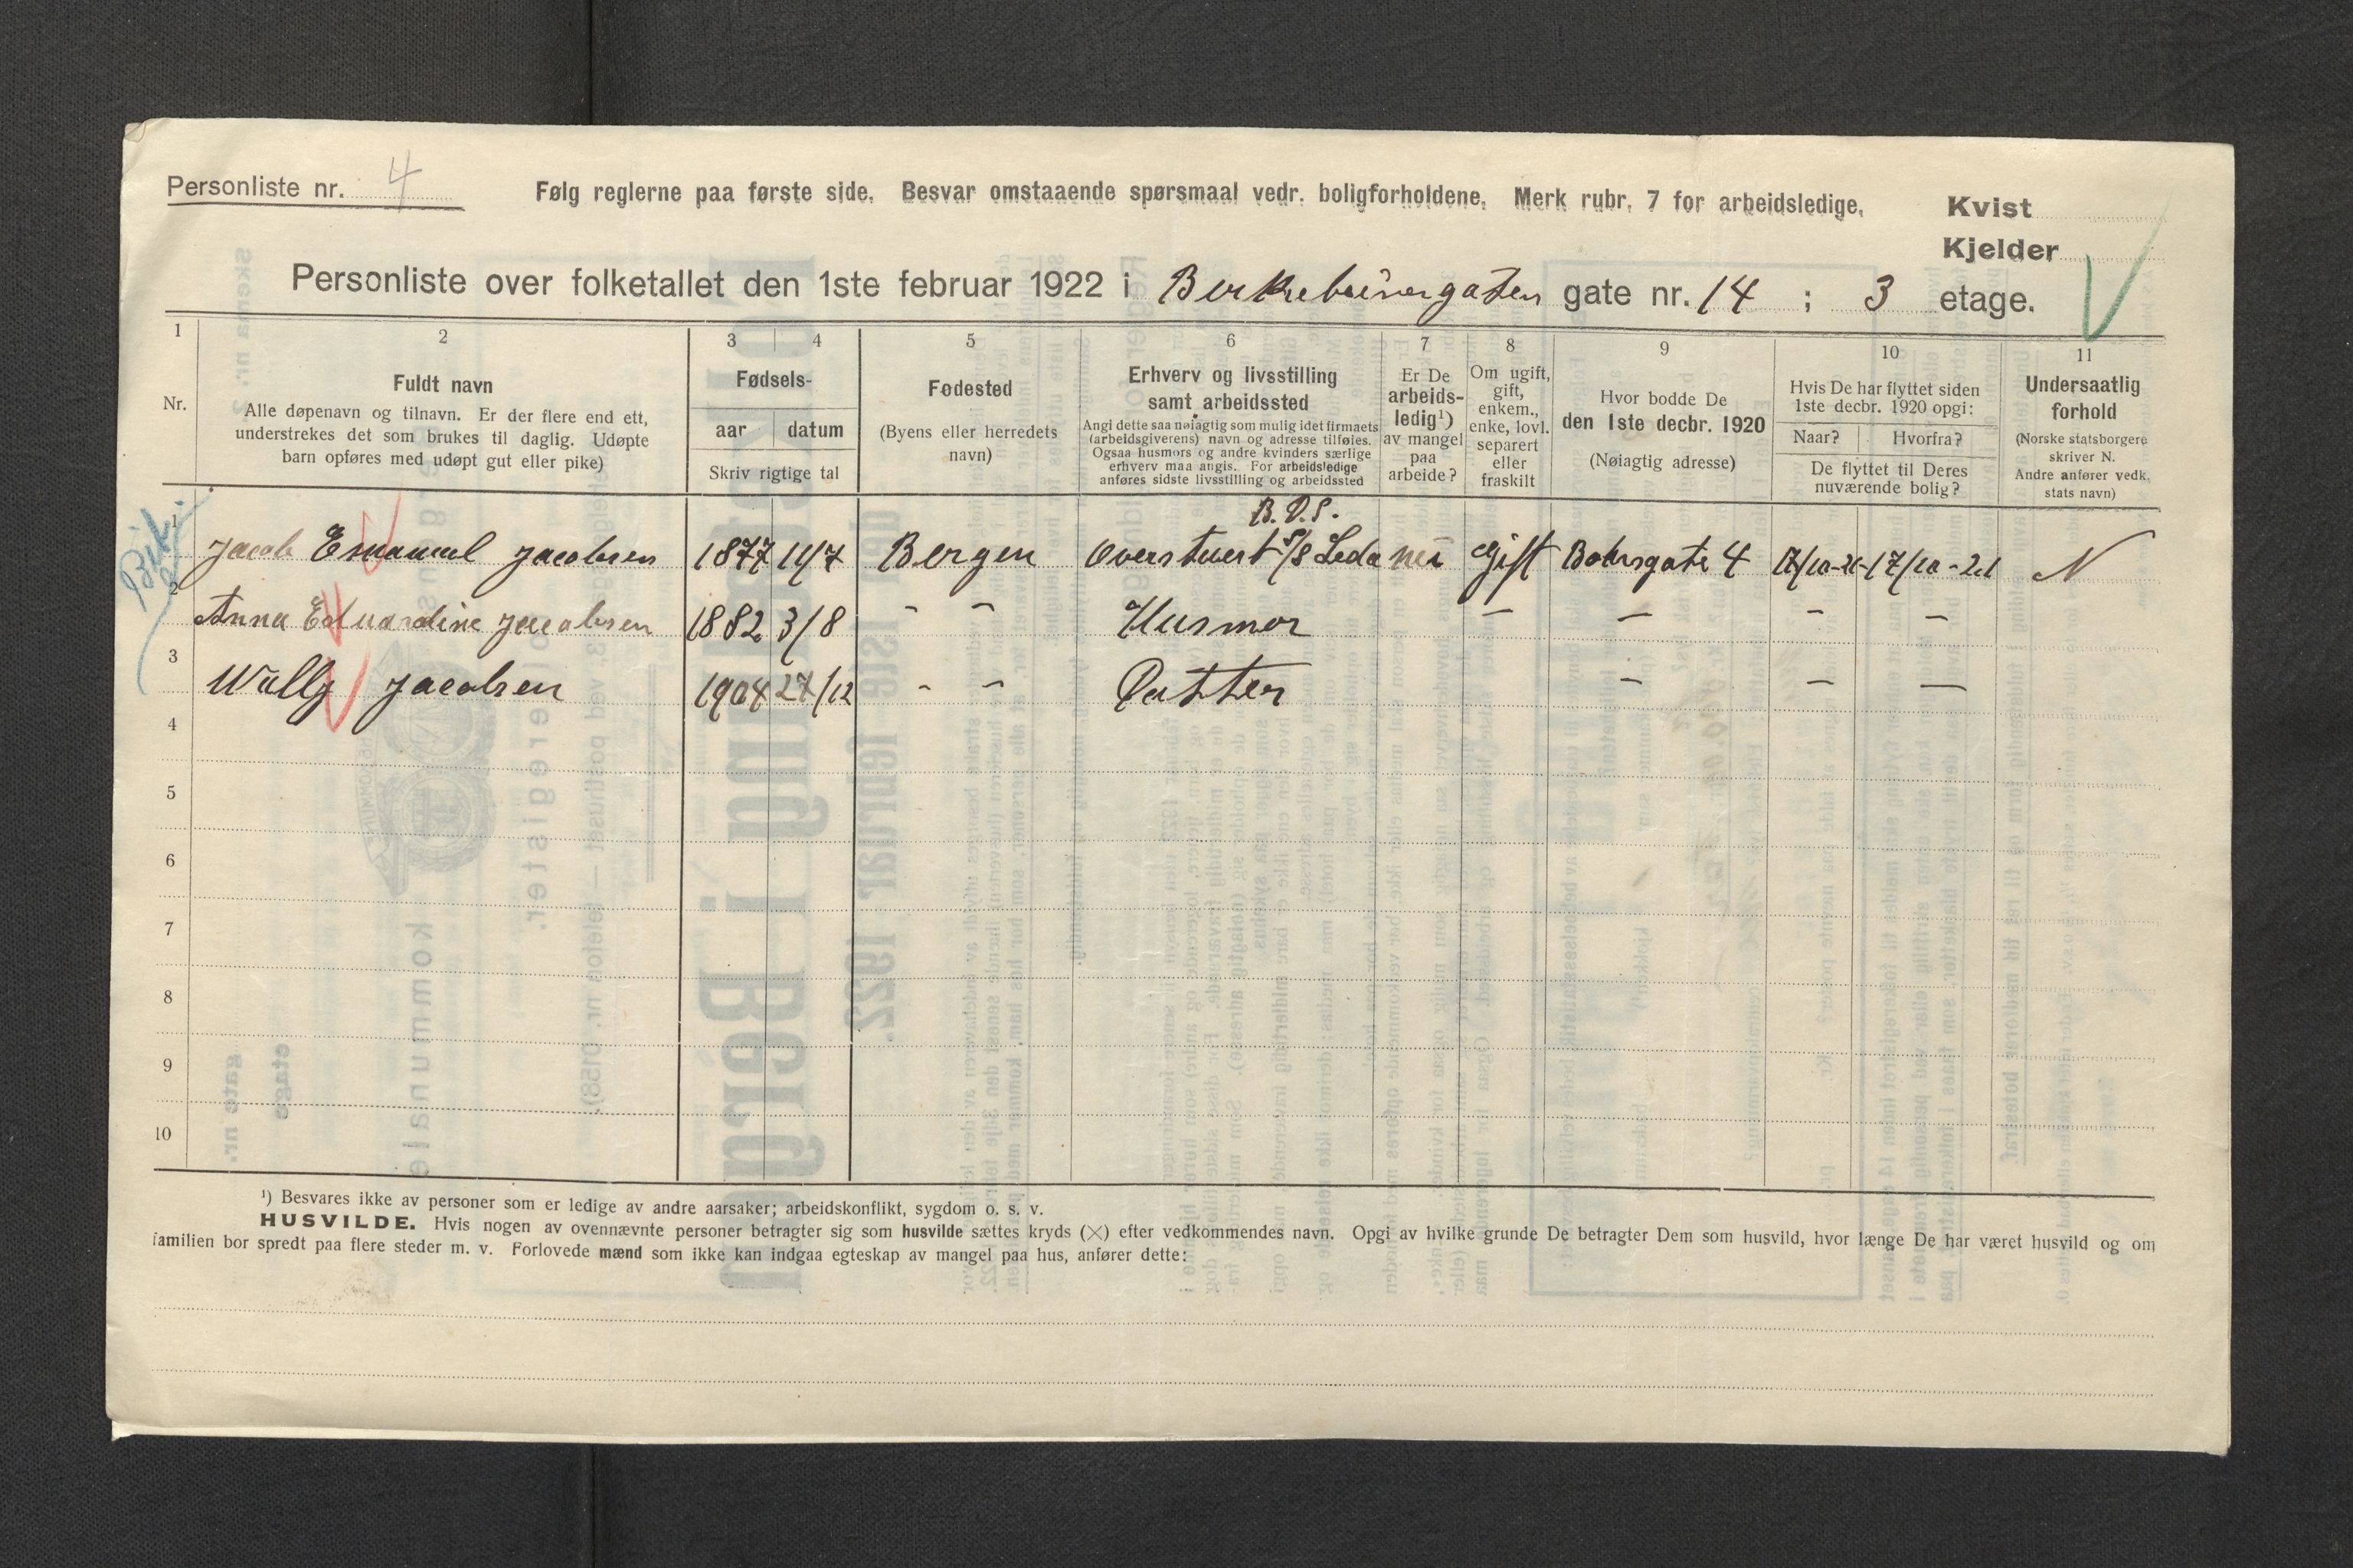 Personliste nr. 4
Følg reglerne paa første side. Besvar omstaaende spørsmaal vedr. boligforholdene. Merk rubr. 7 for arbeidsledige.
Kvist
Kjelder
Personliste over folketallet den 1ste februar 1922 i Birkebeinergaten gate nr. 14 ; 3 etage.
1 2 3 4 5 6 7 8 9 10 11
Nr.
Fuldt navn
Alle døpenavn og tilnavn. Er der flere end ett,
understrekes det som brukes til daglig. Udøpte
barn opføres med udøpt gut eller pike)
Fødsels-
aar datum
Skriv rigtige tal
Fødested
(Byens eller herredets
navn)
Erhverv og livsstilling
samt arbeidssted
Angi dette saa nøiagtig som mulig idet firmaets
(arbeidsgiverens) navn og adresse tilføies.
Ogsaa husmors og andre kvinders særlige
erhverv maa angis. For arbeidsledige
anføres sidste livsstilling og arbeidssted
Er De
arbeids-
ledig¹)
av mangel
paa
arbeide?
Om ugift,
gift,
enkem.,
enke, lovl.
separert
eller
fraskilt
Hvor bodde De
den 1ste decbr. 1920
(Nøiagtig adresse)
Hvis De har flyttet siden
1ste decbr. 1920 opgi:
Naar? Hvorfra?
De flyttet til Deres
nuværende bolig?
Undersaatlig
forhold
(Norske statsborgere
skriver N.
Andre anfører vedk.
stats navn)
B.D.S.
1 Jacob Emanuel Jacobsen 1877 19/7 Bergen Overstuert S/S Leda nei Gift Bohrsgate 4 17/10-21 17/10-21 N
2 Anna Eduardine Jacobsen 1882 3/8 - - Husmor - - - -
3 Wally Jacobsen 1904 27/12 - - Datter - - -
4
5
6
7
8
9
10
¹) Besvares ikke av personer som er ledige av andre aarsaker; arbeidskonflikt, sygdom o. s. v.
HUSVILDE. Hvis nogen av ovennævnte personer betragter sig som husvilde sættes kryds (×) efter vedkommendes navn. Opgi av hvilke grunde De betragter Dem som husvild, hvor længe De har været husvild og om
familien bor spredt paa flere steder m. v. Forlovede mænd som ikke kan indgaa egteskap av mangel paa hus, anfører dette: